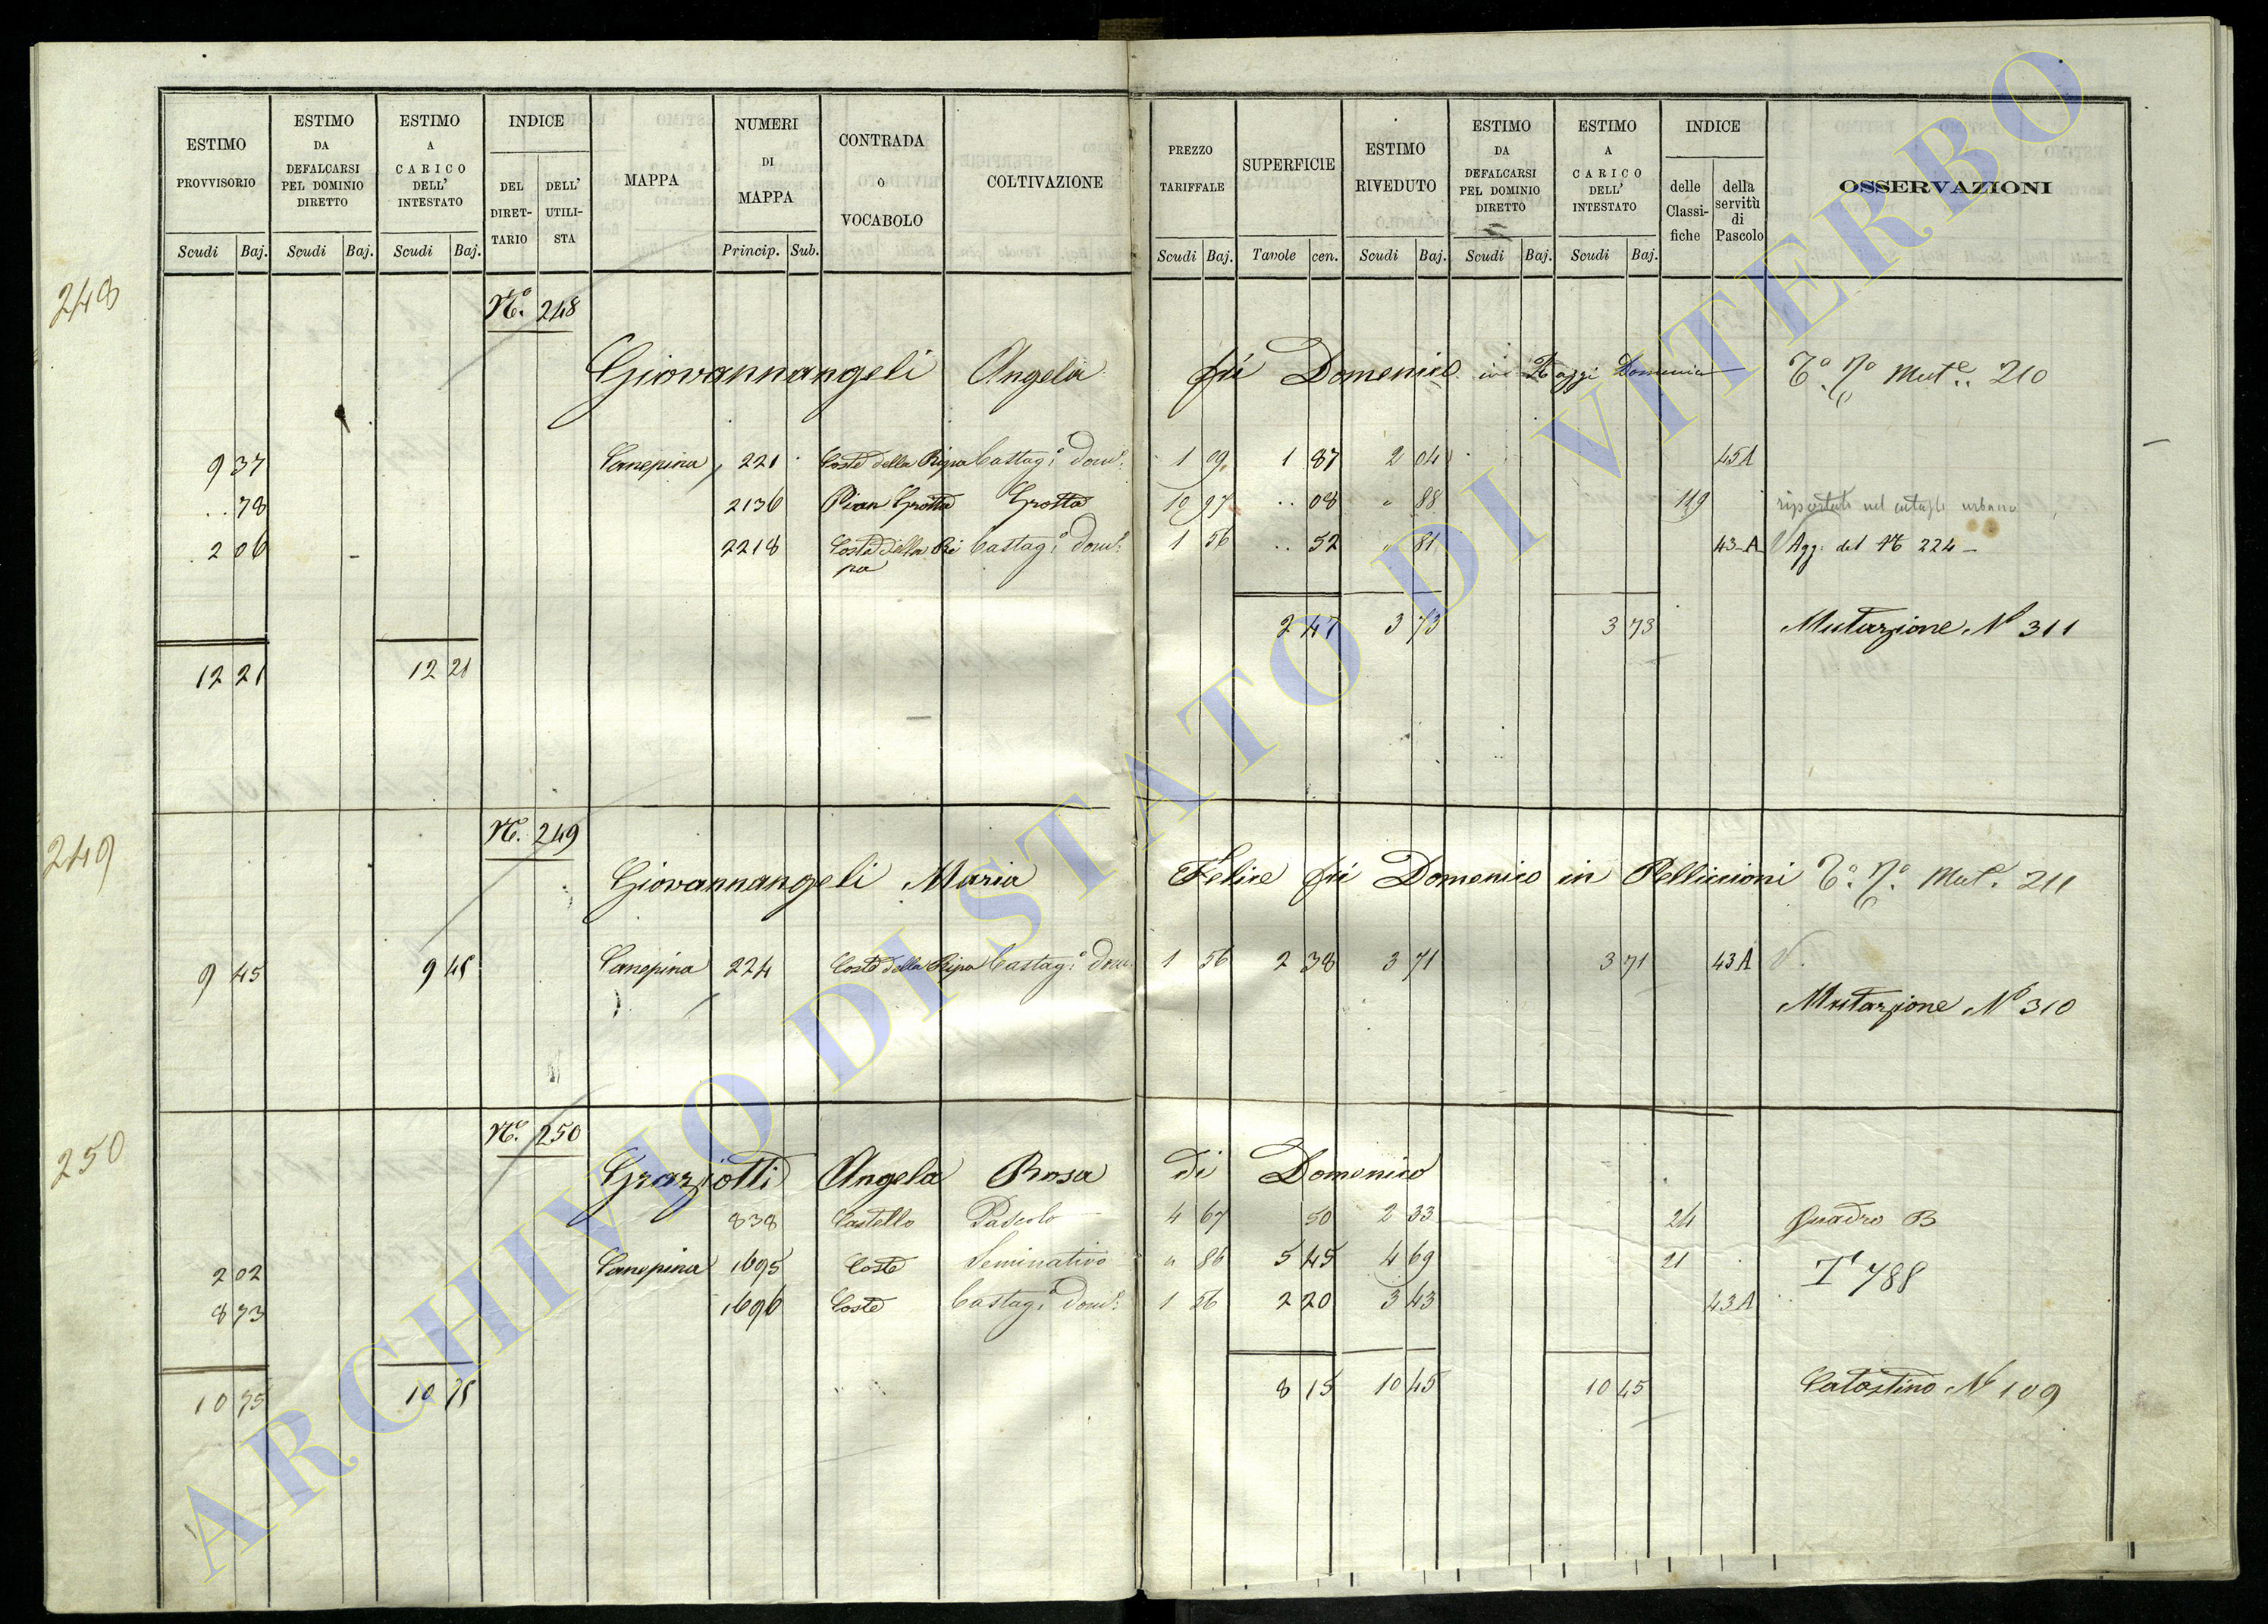 ESTIMO PROVVISORIO Scudi Baj.
ESTIMO DA DEFALCARSI PEL DOMINIO DIRETTO Scudi Baj.
ESTIMO A CARICO DELL' INTESTATO Scudi Baj.
INDICE DEL DIRET-TARIO DELL' UTILI-STA
MAPPA
NUMERI DI MAPPA Princip. Sub.
CONTRADA O VOCABOLO
COLTIVAZIONE
PREZZO TARIFFALE Scudi Baj.
SUPERFICIE Tavole cen.
ESTIMO RIVEDUTO Scudi Baj.
ESTIMO DA DEFALCARSI PEL DOMINIO DIRETTO Scudi Baj.
ESTIMO A CARICO DELL' INTESTATO Scudi Baj.
INDICE delle Classi-fiche della servitù di Pascolo
OSSERVAZIONI
248
N.° 248
Giovannangeli Angela fù Domenico in Raggi Domenico T.° N.° Mut.e 210
9 37 Canepina 221 Coste della Ripa Castag.° dom.° 1 09 1 87 2 04 45A
.. 78 2136 Pian Grotta Grotta 10 97 .. 08 " 88 119 riportato nel catasto urbano
2 06 2218 Costa della Ripa Castag.° dom.° 1 56 .. 52 " 81 43-A Agg: del N 224
2 47 3 73 3 73 Mutazione N° 311
12 21 12 21
249
N. 249
Giovannangeli Maria Felice fù Domenico in Pelliccioni T.° N.° Mut. 211
9 45 9 45 Canepina 224 Coste della Ripa Castag.° dom. 1 56 2 38 3 71 3 71 43A
Mutazione N° 310
250
N.° 250
Graziotti Angela Rosa di Domenico
838 Castello Pascolo 4 67 50 2 33 24 Quadro B
2 02 Canepina 1695 Coste Seminativo " 86 5 45 4 69 21 T 788
8 73 1696 Coste Castag.° dom.° 1 56 2 20 3 43 43A
10 75 10 75 8 15 10 45 10 45 Catastino N 109
ARCHIVIO DI STATO DI VITERBO